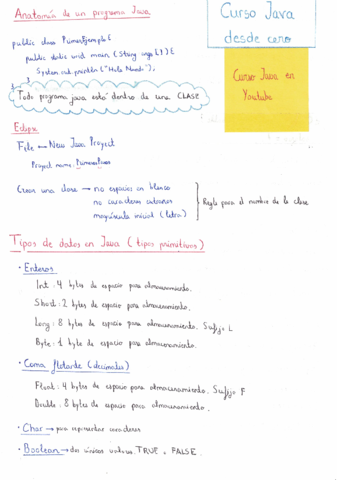 Anatomía de un programa Java.
Curso Java
desde cero
public class PrimerEjemplo {
public static void main (String args [ ]) {
System.out.println ("Hola Mundo");
}
}
Curso Java en
Youtube
Todo programa java está dentro de una CLASE
Eclipse
File → New Java Project
Project name: Primeros Pasos
Crear una clase → no espacios en blanco
no caracteres extraños
mayúscula inicial (letra)
Regla para el nombre de la clase
Tipos de datos en Java (tipos primitivos)
· Enteros
Int: 4 bytes de espacio para almacenamiento.
Short: 2 bytes de espacio para almacenamiento.
Long: 8 bytes de espacio para almacenamiento. Sufijo L
Byte: 1 byte de espacio para almacenamiento.
· Coma flotante (decimales)
Float: 4 bytes de espacio para almacenamiento. Sufijo F
Double: 8 bytes de espacio para almacenamiento.
· Char → para representar caracteres
· Boolean → dos únicos valores. TRUE y FALSE.